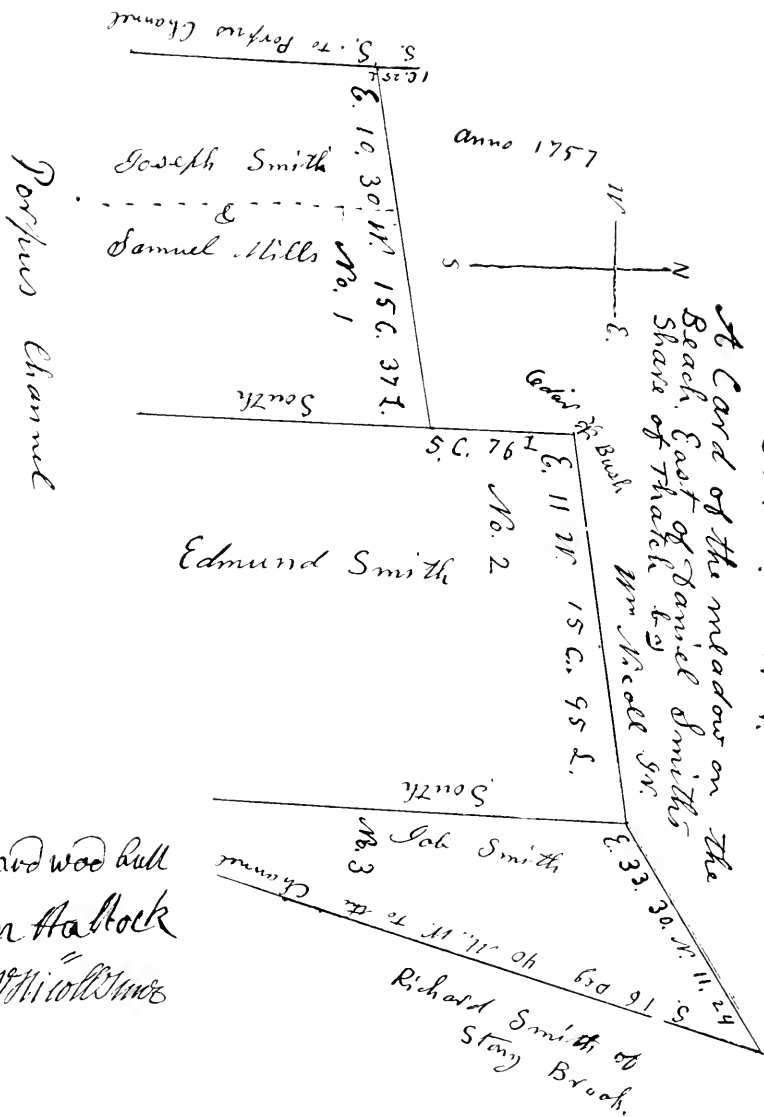 A Card of the meadow on the
Beach, East of Daniel Smiths
Share of Thatch by
Wm Nicoll Jr.
anno 1757
N
S
W
E.
S. S. to Porpus Channel
1 C. 25 L
E. 10. 30 N. 15 C. 37 L.
Joseph Smith
&
Samuel Mills
No. 1
Porpus Channel
South
5. C. 76 L
Cedar Bush
E. 11 N. 15 C. 95 L.
No. 2
Edmund Smith
South
Job Smith
No. 3
E. 33. 30. N. 11. 24
S. 16 Deg 40 M. W. To the Channel
Richard Smith of
Stony Brook.
wood hull
Hallock
Nicoll Junor